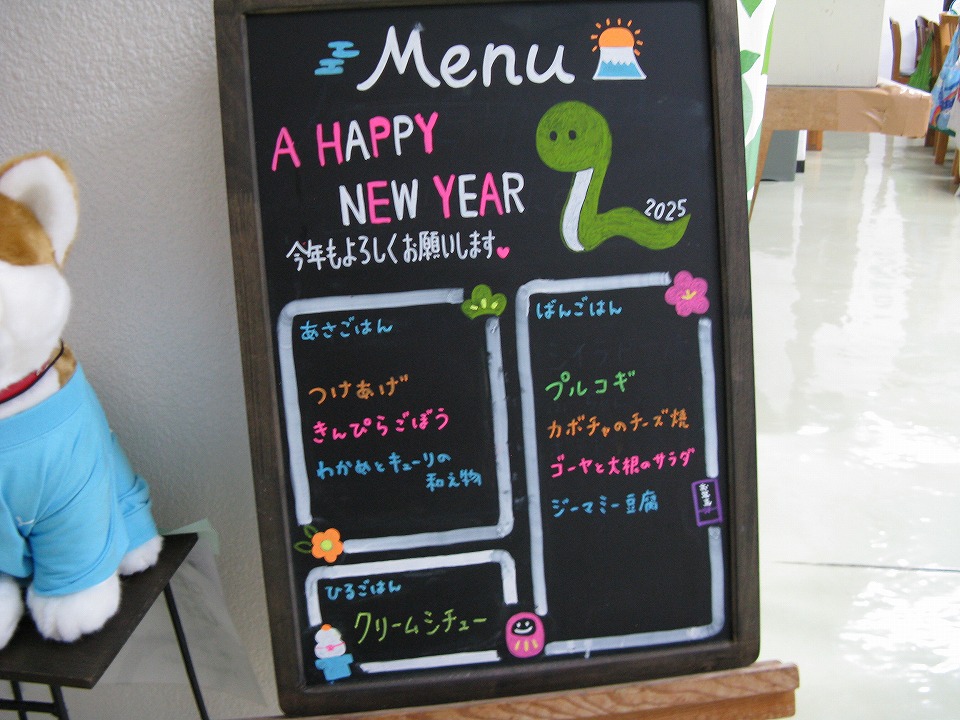 Menu
A HAPPY
NEW YEAR
2025
今年もよろしくお願いします
あさごはん
つけあげ
きんぴらごぼう
わかめとキューリの
和え物
ひるごはん
クリームシチュー
ばんごはん
プルコギ
カボチャのチーズ焼
ゴーヤと大根のサラダ
ジーマミー豆腐